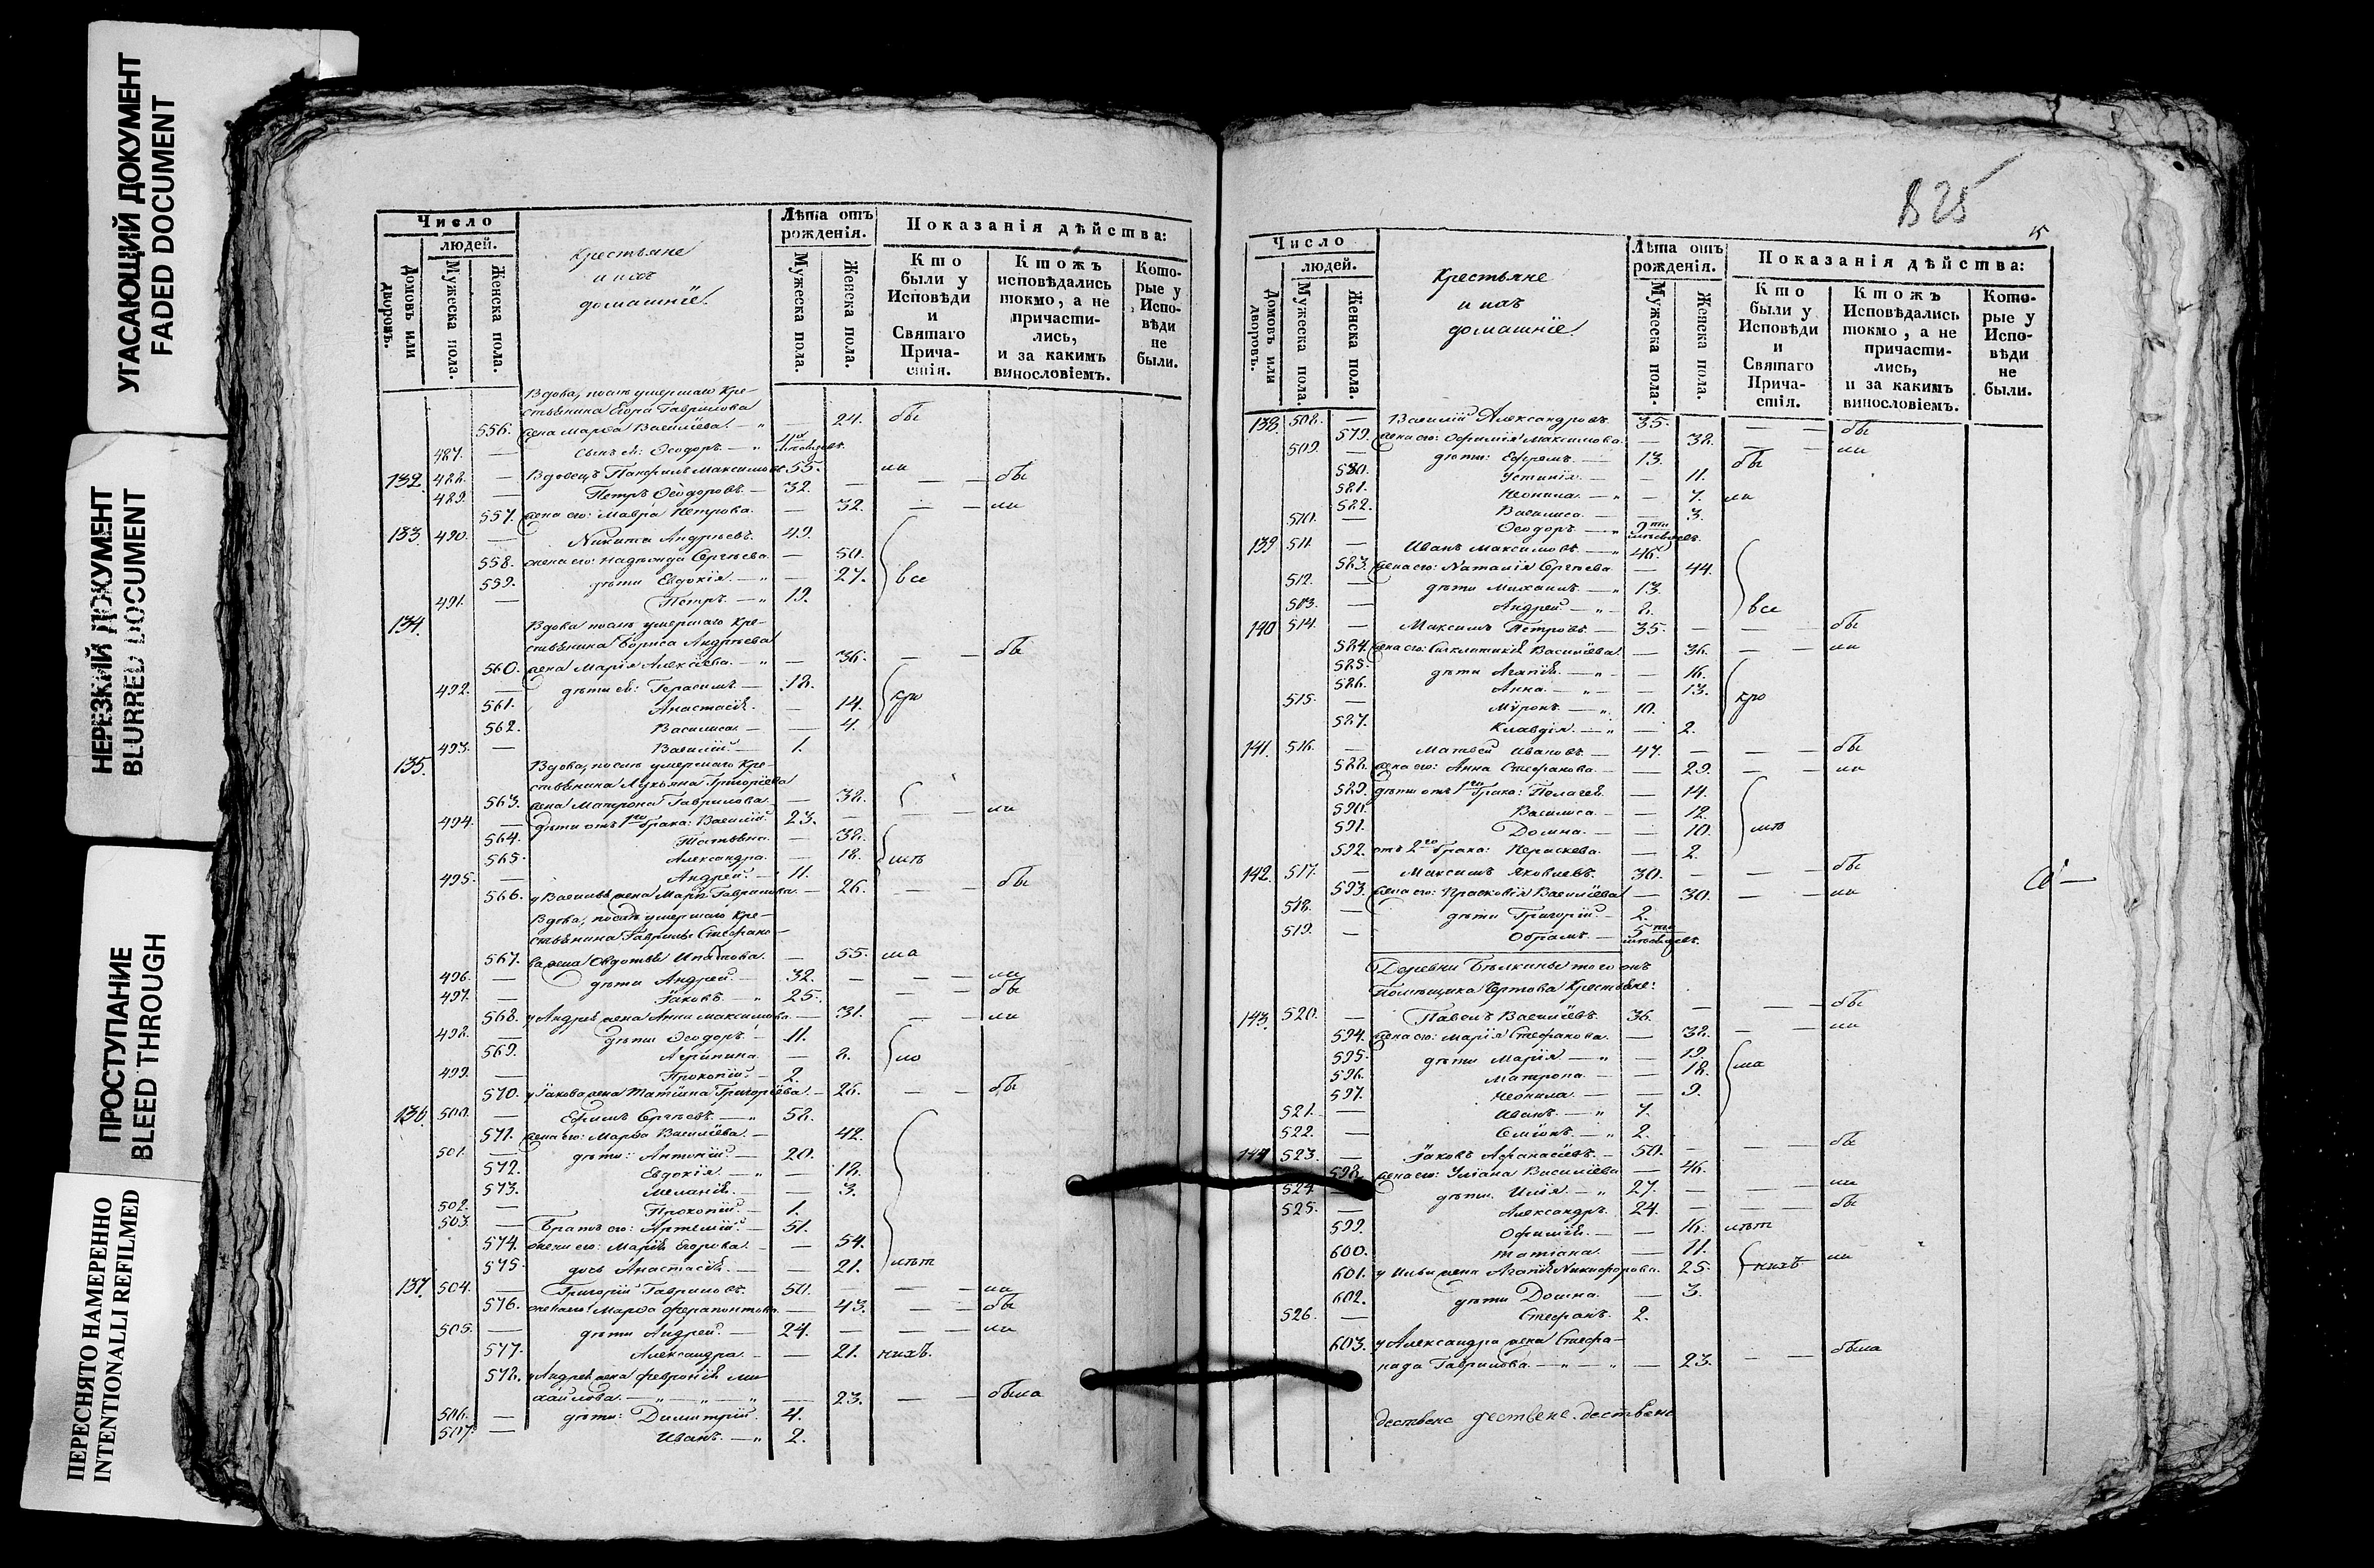 УГАСАЮЩИЙ ДОКУМЕНТ
FADED DOCUMENT
НЕРЕЗКИЙ ДОКУМЕНТ
BLURRED DOCUMENT
ПРОСТУПАНИЕ
BLEED THROUGH
ПЕРЕСНЯТО НАМЕРЕННО
INTENTIONALLI REFILMED
Число
людей.
Домовъ или дворовъ.
Мужеска пола.
Женска пола.
Крестьяне
и ихъ
домашніе.
Лѣта отъ
рожденія.
Мужеска пола.
Женска пола.
Показанія дѣйства:
Кто
были у
Исповѣди
и
Святаго
Прича-
стія.
Ктожъ
исповѣдались
токмо, а не
причасти-
лись,
и за какимъ
винословіемъ.
Кото-
рые у
Испо-
вѣди
не
были.
Вдова, послѣ умершаго Кре-
стьянина Егора Гаврилова
556. жена Марѳа Васильева — 24. бы
487. — сынъ ея: Ѳеодоръ —
132. 488. — Вдовецъ Панфилъ Максимовъ 55. ли
489. — Петръ Ѳеодоровъ — 32. — — — бы
557. жена его: Мавра Петрова — 32. — — ли
133. 490. — Никита Андреевъ 49.
558. жена его: Надежда Сергѣева — 50.
559. дѣти Евдокія — 27. все
491. — Петръ — 19.
134. Вдова послѣ умершаго Кре-
стьянина Бориса Андреева
560. жена Марія Алексѣева — 36. — — бы
492. — дѣти ея: Герасимъ — 18.
561. Анастасія — 14.
562. Василиса — 4.
493. — Василій — 1.
135. Вдова, послѣ умершаго Кре-
стьянина Лукьяна Григоріева
563. жена Матрона Гаврилова — 38.
494. — дѣти отъ 1го брака: Василій 23. — — — ли
564. Татьяна — 38.
565. Александра — 18.
495. — Андрей — 11.
566. у Василья жена Марія Гаврилова — 26. — — бы
Вдова, послѣ умершаго Кре-
стьянина Гаврилы Стефано-
567. ва жена Овдотья Ипатова — 55.
496. — дѣти Андрей — 32. — — — ли
497. — Іаковъ — 25. — — бы
568. у Андрея жена Анна Максимова — 31. — — ли
498. — дѣти Ѳеодоръ — 11.
569. Агрипина — 8.
499. — Прокопій — 2.
570. у Іакова жена Татіана Григоріева — 26. — — бы
136. 500. — Ефимъ Сергѣевъ — 58.
571. жена его: Марѳа Васильева — 42.
501. — дѣти: Антоній — 20.
572. Евдокія — 18.
573. Меланія — 3.
502. — Прокопій — 1.
503. — Братъ его: Артемій — 51.
574. жена его: Марія Егорова — 54.
575. дочь Анастасія — 21.
137. 504. — Григорій Гавриловъ 50. — — — ли
576. жена его: Марѳа Ферапонтова — 43. — — бы
505. — дѣти Андрей — 24. — — — ли
577. Александра — 21. нихъ.
578. у Андрея жена Февронія Ми-
хайлова — 23. — — была
506. — дѣти: Димитрій 4.
507. — Иванъ — 2.
825
15
Число
людей.
Домовъ или дворовъ.
Мужеска пола.
Женска пола.
Крестьяне
и ихъ
домашніе.
Лѣта отъ
рожденія.
Мужеска пола.
Женска пола.
Показанія дѣйства:
Кто
были у
Исповѣди
и
Святаго
Прича-
стія.
Ктожъ
Исповѣдались
токмо, а не
причасти-
лись,
и за какимъ
винословіемъ.
Кото-
рые у
Испо-
вѣди
не
были.
138. 508. — Василій Александровъ 35. — — бы
579. жена его: Офимія Максимова — 38. — — ли
509. — дѣти: Ефремъ — 13. бы
580. Устинія — 11.
581. Неонила — 7. ли
582. Василиса — 3.
510. — Ѳеодоръ — 9ти мѣсяцевъ.
139. 511. — Иванъ Максимовъ — 46.
583. жена его: Наталія Сергѣева — 44.
512. — дѣти Михаилъ — 13.
513. — Андрей — 8. все
140. 514. — Максимъ Петровъ — 35. — — бы
584. жена его: Васильева — 36. — — ли
585. дѣти Агапія — 16.
586. Анна — 13.
515. — Муронъ — 10.
587. Клавдія — 2.
141. 516. — Матвей Ивановъ — 47. — — — бы
588. жена его: Анна Стефанова — 29. — — ли
589. дѣти отъ 1го брака: Пелагея — 14.
590. Василиса — 12.
591. Домна — 10.
592. отъ 2го брака: Параскева — 2.
142. 517. — Максимъ Яковлевъ 30. — — — бы
593. жена его: Прасковія Васильева — 30. — — ли
518. — дѣти Григорій — 2.
519. — Обрамъ — 5ти мѣсяцевъ.
Деревни Бѣлкины того жъ
Помѣщика Чертова Крестьяне:
143. 520. — Павелъ Васильевъ 36. — — — бы
594. жена его: Марія Стефанова — 38. — — ли
595. дѣти Марія — 19.
596. Матрона — 18.
597. Неонила — 9.
521. — Иванъ — 7.
522. — Симіонъ — 2.
144. 523. — Іаковъ Афанасіевъ — 50. — — — бы
598. жена его: Уліана Васильева — 46.
524. дѣти Илія — 27. — — — ли
525. — Александръ 24. — — — бы
599. Офимія — 16.
600. Татіана — 11.
601. у Ильи жена Агапія Никифорова 25. нихъ ли
602. дѣти Домна — 3.
526. — Стефанъ 2.
603. у Александра жена Стефа-
нида Гаврилова — 23. — — была